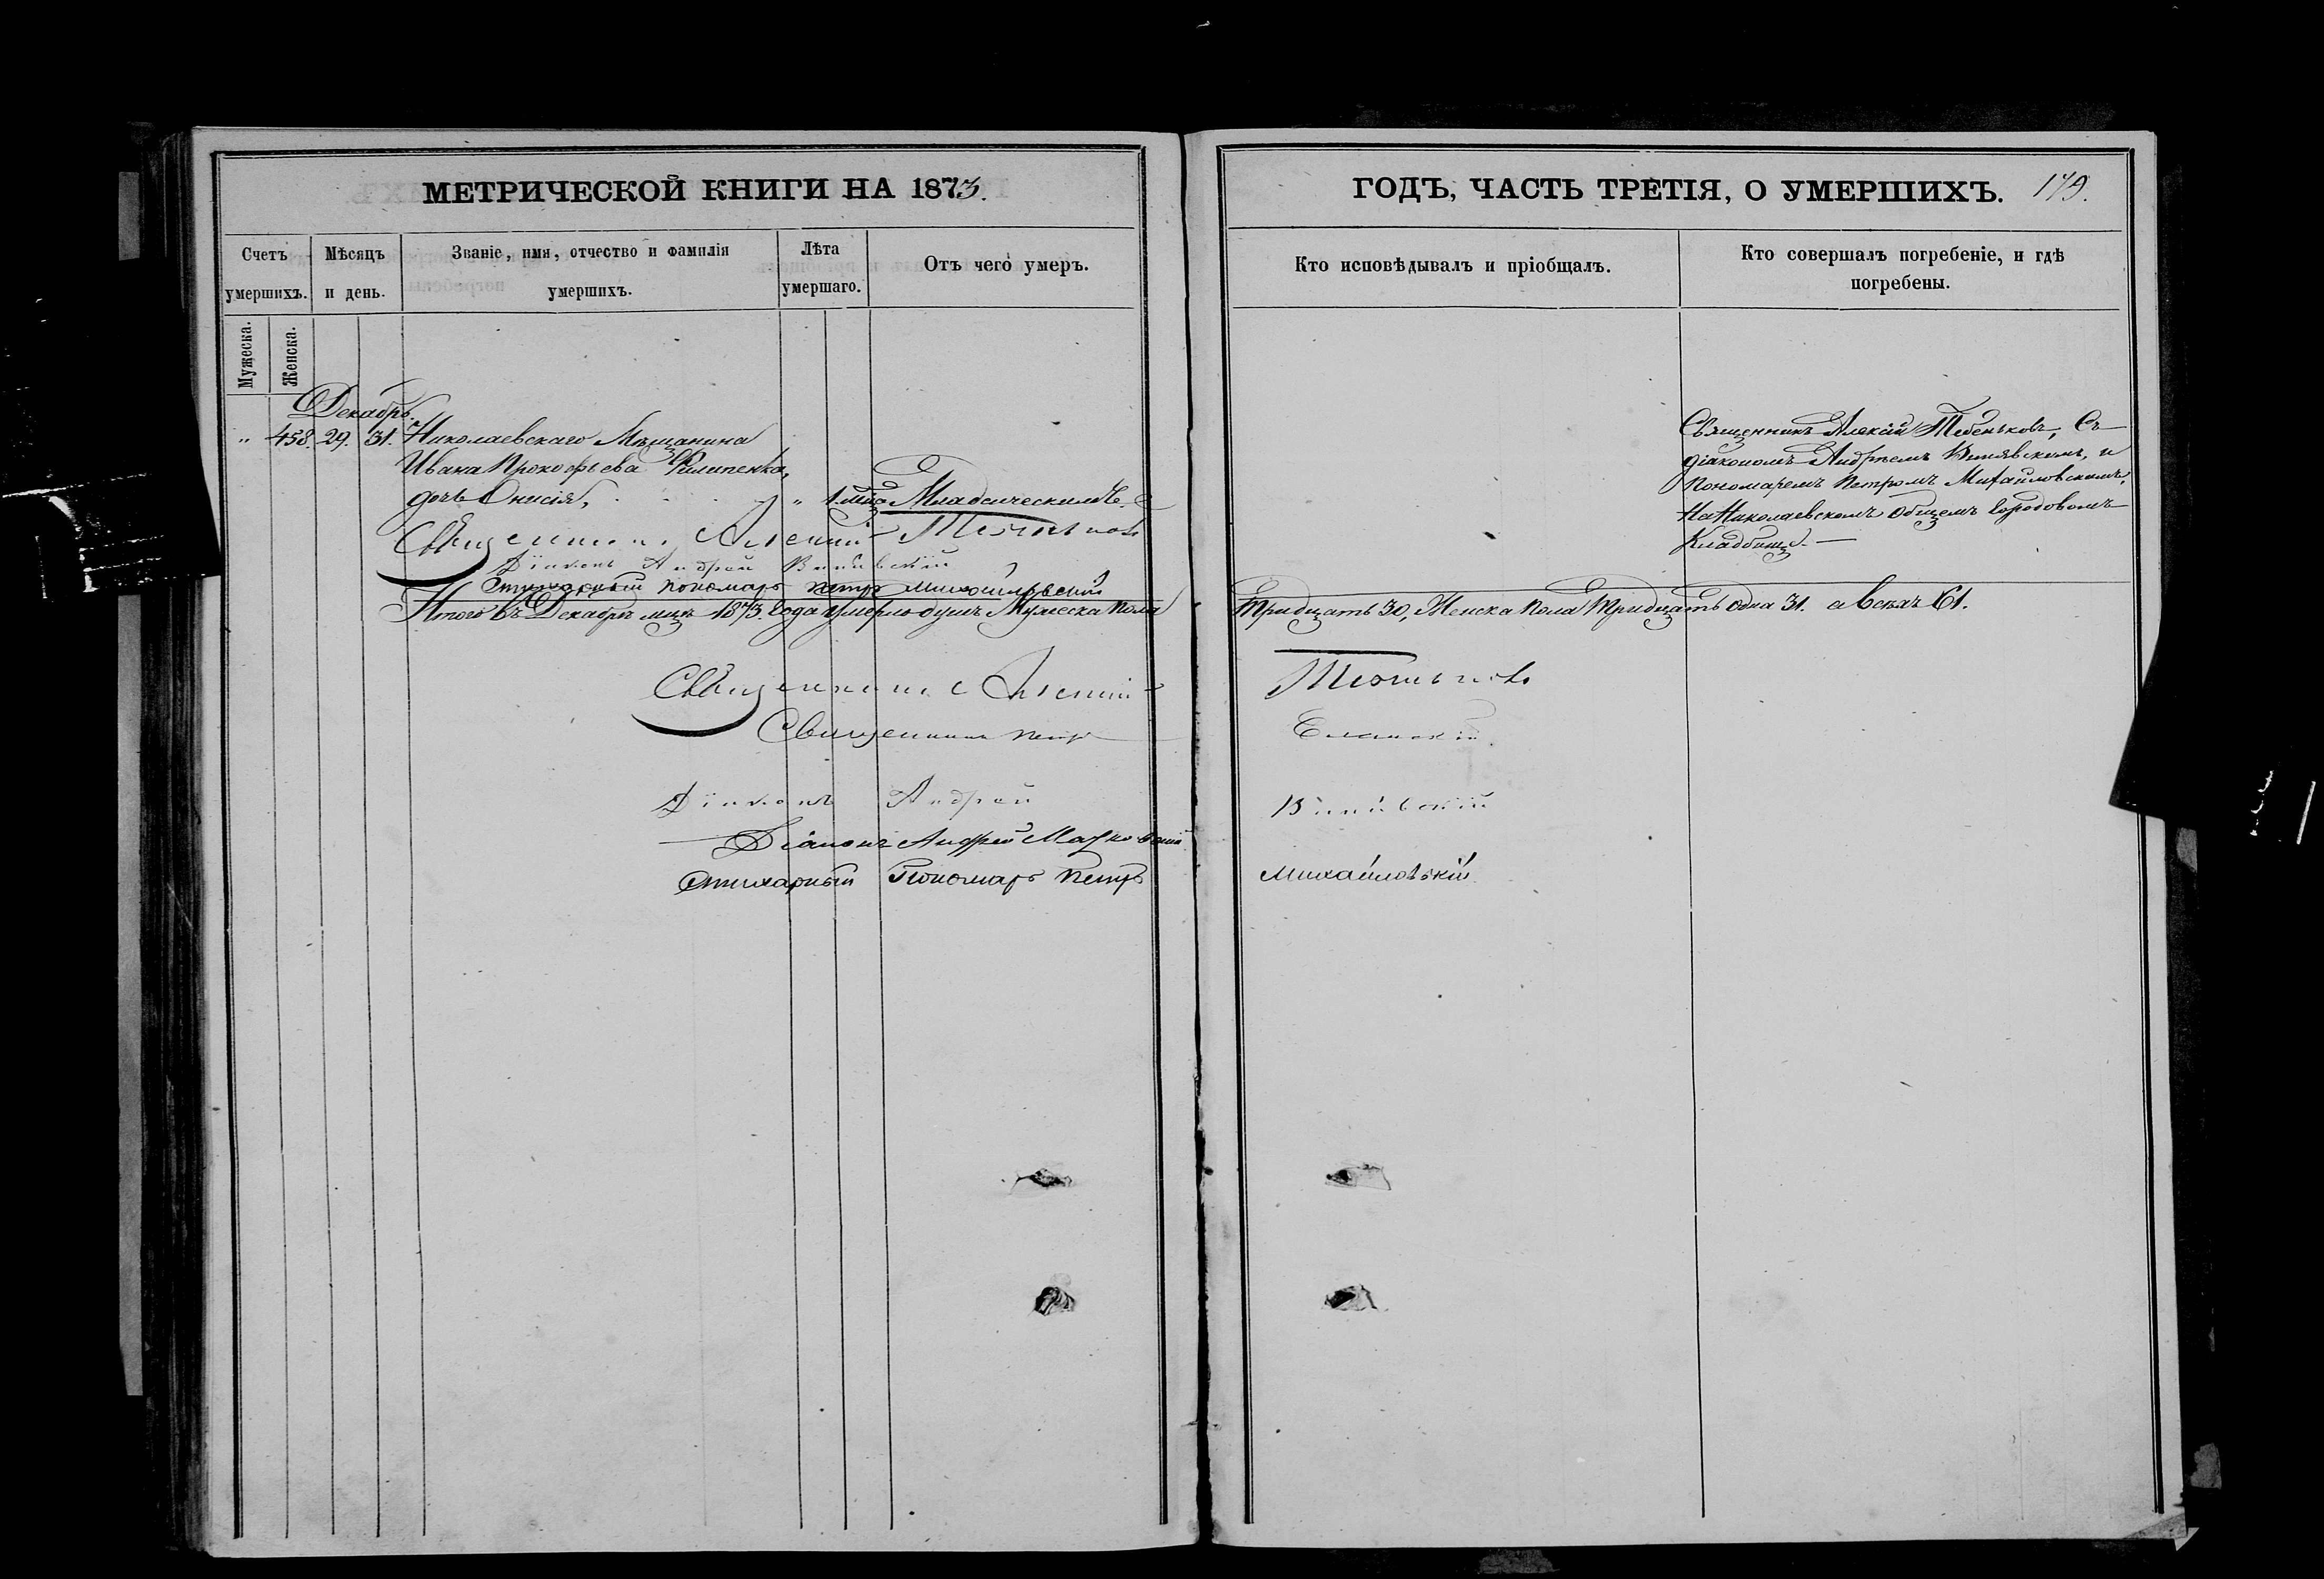 МЕТРИЧЕСКОЙ КНИГИ НА 1873.
Счетъ умершихъ.
Мѣсяцъ и день.
Званіе, имя, отчество и фамилія умершихъ.
Лѣта умершаго.
Отъ чего умеръ.
Мужеска.
Женска.
Декабрь.
" 458. 29. 31. Николаевскаго Мѣщанина
Ивана Прокофьева Филипенка,
дочь Онисія, " 1 мца Младенческимъ
Священникъ Алексій Тебеньковъ
Діаконъ Андрей
Стихарный пономарь Петръ Михайловскій
Итого въ Декабрѣ мцѣ 1873. года умерло душъ Мужеска пола
Священникъ Алексій
Священникъ Петръ
Діаконъ Андрей
Діаконъ Андрей
Стихарный Пономарь Петръ
ГОДЪ, ЧАСТЬ ТРЕТІЯ, О УМЕРШИХЪ. 179.
Кто исповѣдывалъ и пріобщалъ.
Кто совершалъ погребеніе, и гдѣ погребены.
Священникъ Алексій Тебеньковъ, Съ
діакономъ Андреемъ и
Пономаремъ Петромъ Михайловскимъ,
На Николаевскомъ Общемъ Городовомъ
Кладбищѣ. —
тридцать 30, Женска пола тридцать одна 31. а всѣхъ 61.
Тебеньковъ
Михайловскій